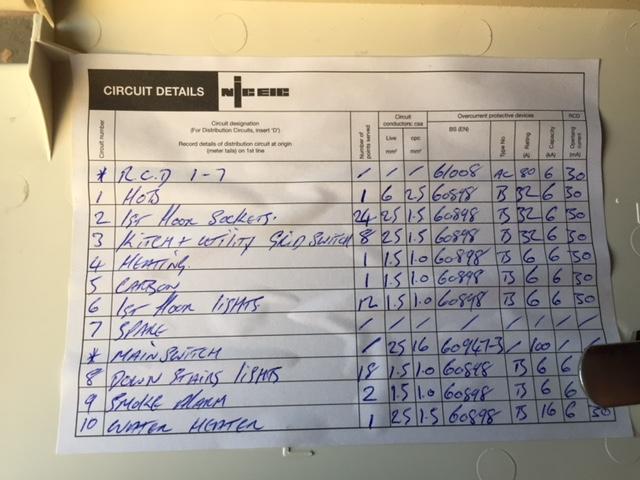 CIRCUIT DETAILS NICEIC
Circuit number
Circuit designation
(For Distribution Circuits, insert 'D')
Record details of distribution circuit at origin
(meter tails) on 1st line
Number of points served
Circuit
conductors: csa
Live
mm²
cpc
mm²
Overcurrent protective devices
BS (EN)
Type No
Rating
(A)
Capacity
(kA)
RCD
Operating current
(mA)
* R.C.D 1-7 / / / 61008 AC 80 6 30
1 HOB 1 6 2.5 60898 B 32 6 30
2 1ST Floor Sockets. 24 2.5 1.5 60898 B 32 6 30
3 KITCH + UTILITY GRID SWITCH 8 2.5 1.5 60898 B 32 6 30
4 HEATING. 1 1.5 1.0 60898 B 6 6 30
5 CARBON 1 1.5 1.0 60898 B 6 6 30
6 1ST Floor LIGHTS 12 1.5 1.0 60898 B 6 6 30
7 SPARE / / / / / / / /
* MAIN SWITCH / 25 16 60947-3 / 100 / /
8 DOWN STAIRS LIGHTS 18 1.5 1.0 60898 B 6 6
9 SMOKE ALARM 2 1.5 1.0 60898 B 6 6
10 WATER HEATER 1 2.5 1.5 60898 B 16 6 30